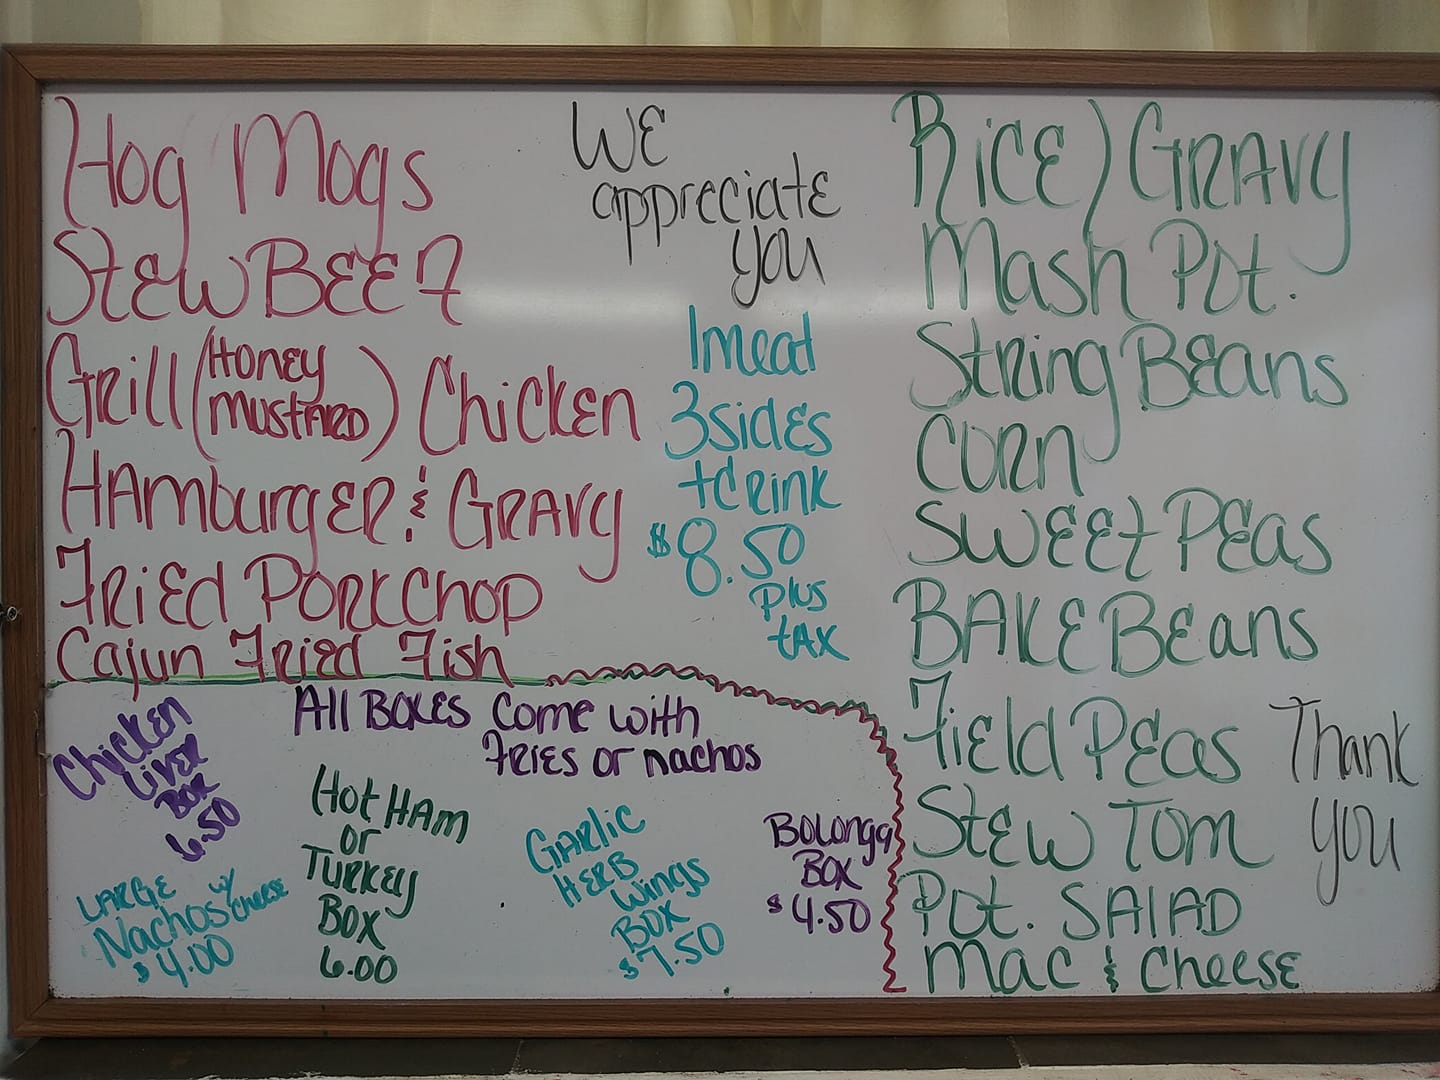 Hog Mogs
Stew BEEF
Grill (Honey Mustard) Chicken
Hamburger & Gravy
Fried Pork Chop
Cajun Fried Fish
WE
appreciate
you
1 meat
3 sides
+ drink
$8.50
plus
tax
Rice) Gravy
Mash Pot.
String Beans
Corn
Sweet Peas
Bake Beans
Field Peas
Stew Tom
Pot. Salad
Mac & Cheese
Thank
you
All Boxes Come with
Fries or nachos
Chicken
Liver
Box
6.50
Large
Nachos w/ cheese
$4.00
Hot Ham
or
Turkey
Box
6.00
Garlic
Herb
Wings
Box
$7.50
Bolonga
Box
$4.50